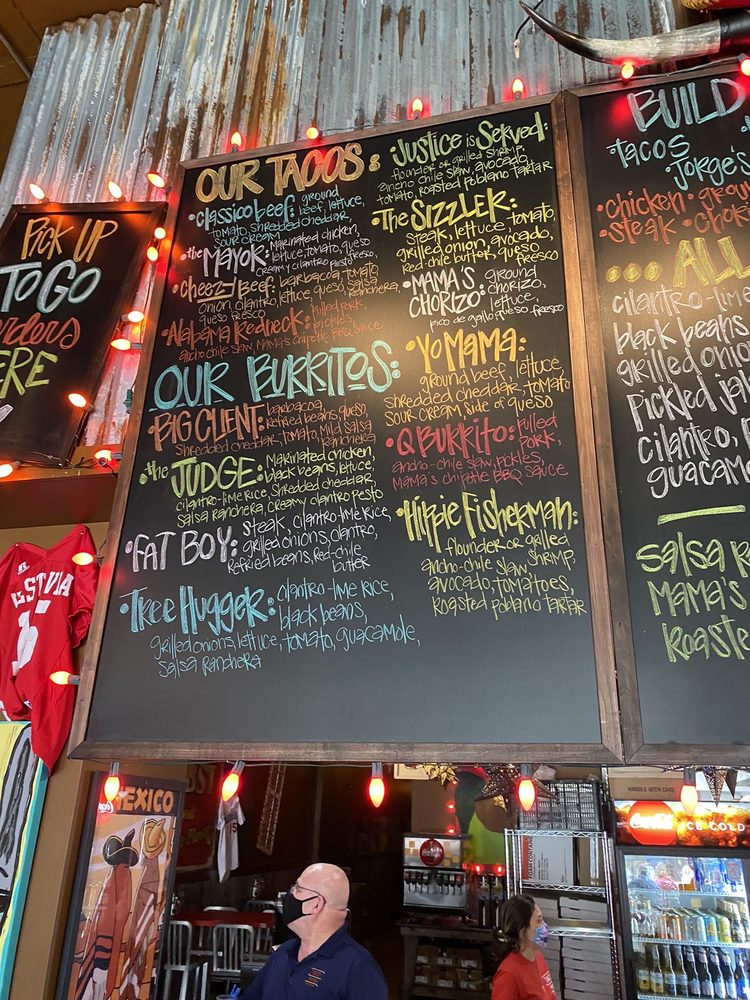 Pick UP
TO GO
orders
ERE
OUR TACOS:
•classico beef: ground
beef, lettuce,
tomato, shredded cheddar,
sour cream
•the MAYOR: Marinated chicken,
lettuce, tomato, queso
creamy cilantro pesto fresco,
•cheezy Beef: barbacoa, tomato
onion, cilantro, lettuce, queso, salsa
queso fresco ranchera,
•Alabama Redneck: Pulled Pork,
Pickles,
ancho chile slaw, Mama's chipotle BBQ sauce
•Justice is Served:
flounder or grilled shrimp,
ancho chile slaw, avocado,
tomato, roasted poblano tartar
•The SIZZLER:
steak, lettuce, tomato,
grilled onion, avocado,
red chile butter, queso
fresco
•MAMA'S
CHORIZO: ground
chorizo,
lettuce,
pico de gallo, queso fresco
OUR BURRITOS:
•BIG CLIENT: barbacoa,
refried beans, queso,
shredded cheddar, tomato, mild salsa
ranchera
•the JUDGE: Marinated chicken,
black beans, lettuce,
cilantro-lime rice, shredded cheddar,
salsa ranchera, creamy cilantro pesto
•FAT BOY: steak, cilantro-lime rice,
grilled onions, cilantro,
refried beans, red-chile
butter
•Tree Hugger: cilantro-lime rice,
black beans,
grilled onions, lettuce, tomato, guacamole,
salsa ranchera
•YO MAMA:
ground beef, lettuce,
shredded cheddar, tomato
sour cream side of queso
•Q BURRITO: Pulled
Pork,
ancho-chile slaw, pickles,
Mama's chipotle BBQ sauce
•Hippie Fisherman:
flounder or grilled
shrimp,
ancho-chile slaw,
avocado, tomatoes,
roasted poblano tartar
BUILD
•TACOS
Jorge's
•Chicken •grou
•steak •chor
... ALL
cilantro-lime
black beans
grilled onion
Pickled ja
cilantro,
guacamo
salsa r
Mama's
Roaste
ESTAVIA
5
MEXICO
HANDLE WITH CARE
Coca-Cola
ICE COLD